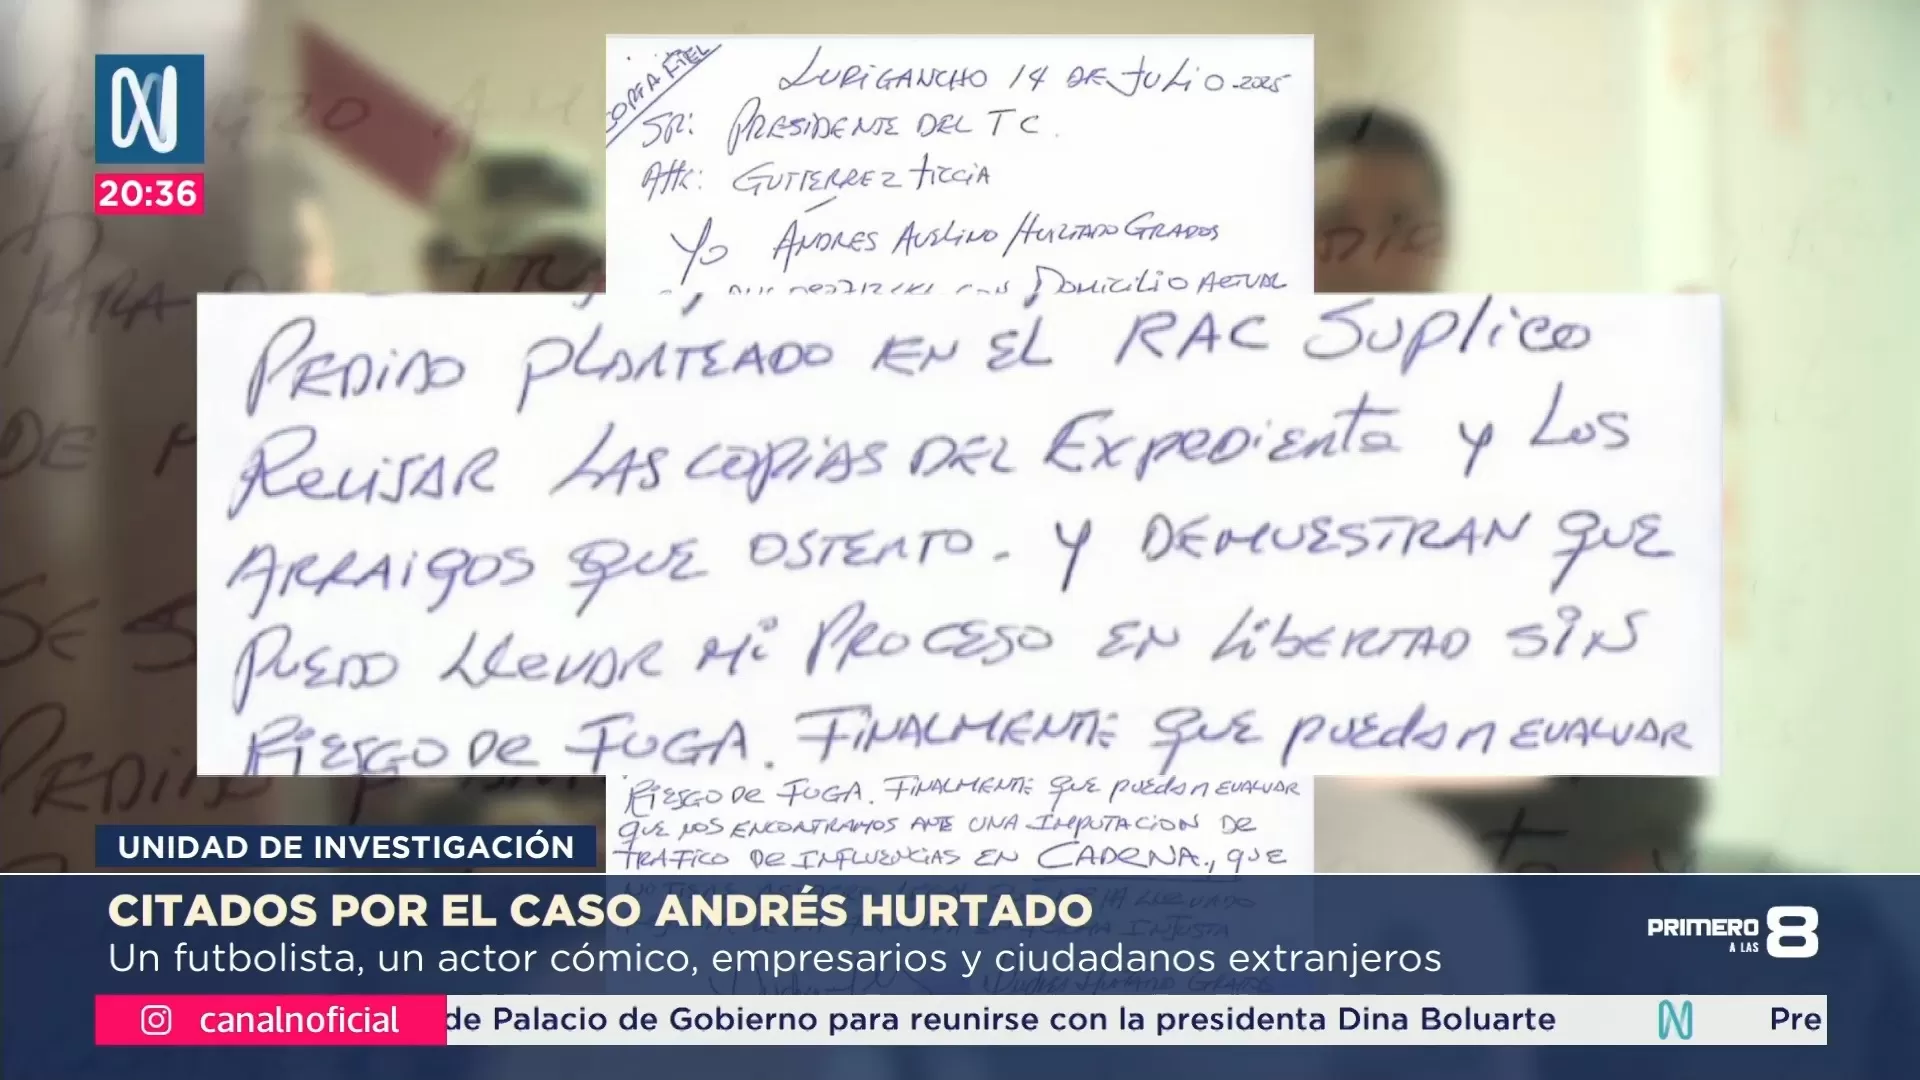 N
20:36
COPIA FIEL
LURIGANCHO 14 DE JULIO-2025
SR: PRESIDENTE DEL TC.
Att: GUTIERREZ TICCIA
Yo ANDRES AVELINO HURTADO GRADOS
CON DOMICILIO ACTUAL
PEDIDO PLANTEADO EN EL RAC Suplico
REVISAR LAS COPIAS DEL Expediente y Los
ARRAIGOS QUE OSTENTO. Y DEMUESTRAN QUE
PUEDO LLEVAR Mi PROCESO EN LIBERTAD SIN
RIESGO DE FUGA. FINALMENTE QUE puedan EVALUAR
RIESGO DE FUGA. FINALMENTE QUE puedan EVALUAR
QUE NOS ENCONTRAMOS ANTE UNA IMPUTACION DE
TRAFICO DE INFLUENCIAS EN CADENA., QUE
HA LLEVADO
INJUSTA
UNIDAD DE INVESTIGACIÓN
CITADOS POR EL CASO ANDRÉS HURTADO
Un futbolista, un actor cómico, empresarios y ciudadanos extranjeros
PRIMERO A LAS 8
canalnoficial de Palacio de Gobierno para reunirse con la presidenta Dina Boluarte N Pre